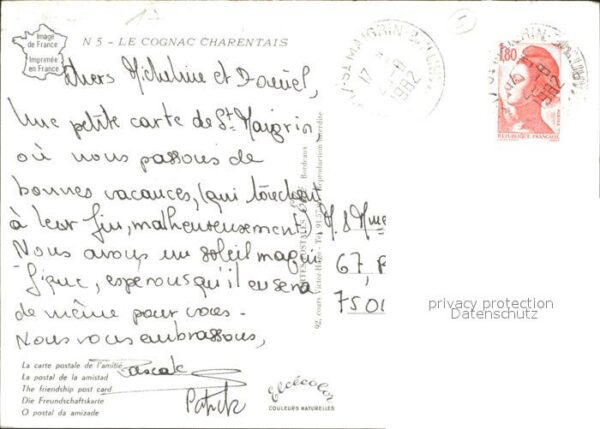 Image
de France
Imprimée
en France
N 5 - LE COGNAC CHARENTAIS
Chers Micheline et Daniel,
Une petite carte de St Maigrin,
où nous passons de
bonnes vacances, (qui touchent
à leur fin, malheureusement)
Nous avons un soleil magni
fique, espérons qu'il en sera
de même pour vous.
Nous vous embrassons,
Pascale
Patrick
La carte postale de l'amitié
La postal de la amistad
The friendship post card
Die Freundschaftskarte
O postal da amizade
Elcécolor
COULEURS NATURELLES
92, cours Victor-Hugo - Tél.
Bordeaux
Reproduction interdite
M. & Mme
67,
7501
17
1982
1,80
REPUBLIQUE FRANÇAISE
privacy protection
Datenschutz